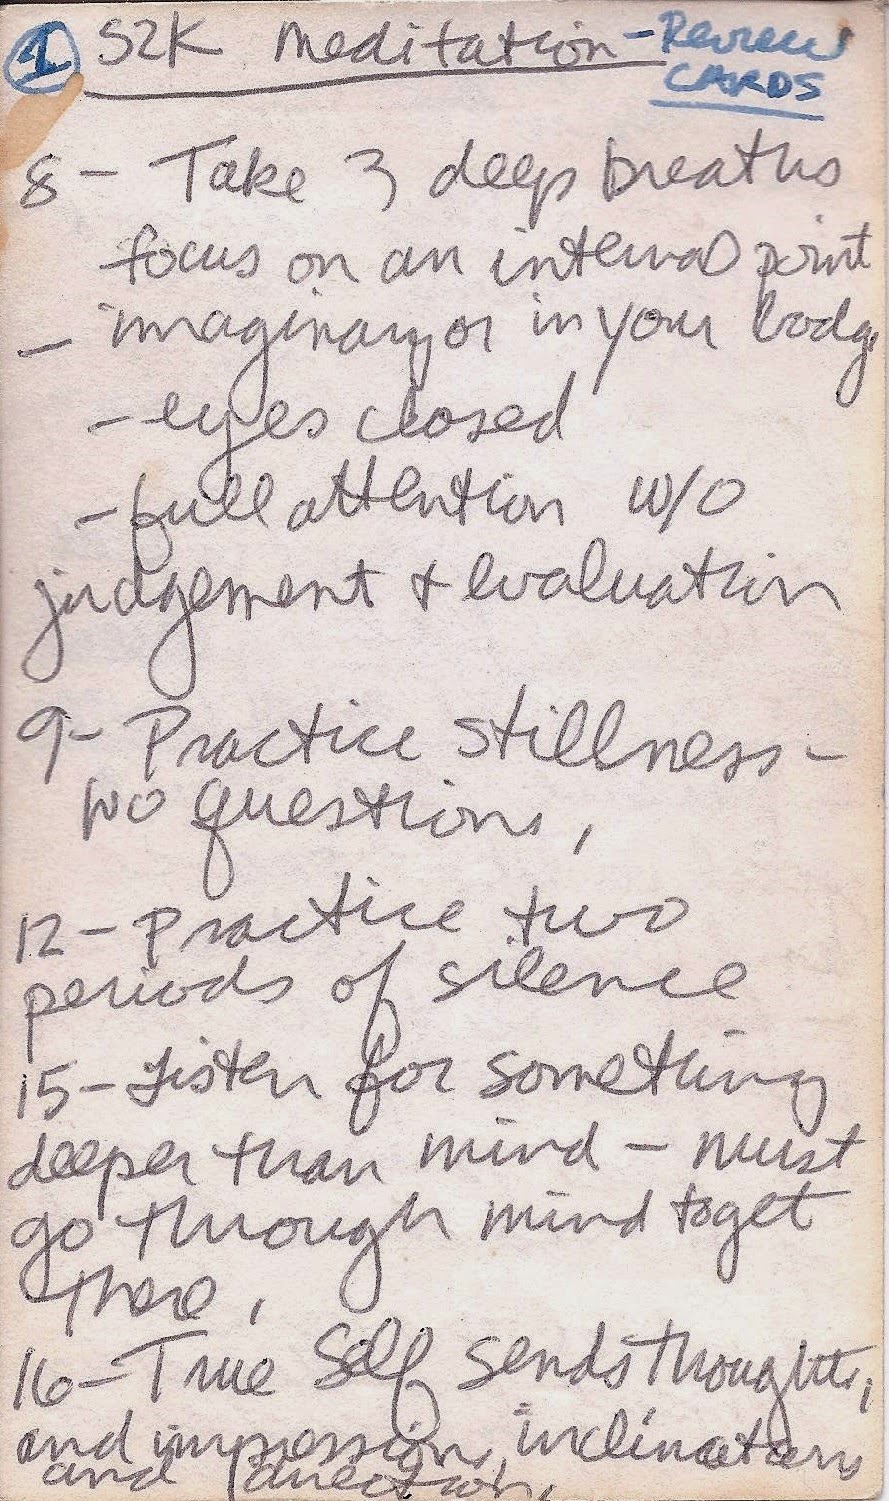 1 S2K Meditation - Review
CARDS
8 - Take 3 deep breaths
focus on an internal point
- imaginary or in your body,
- eyes closed
- full attention w/o
judgement & evaluation
9 - Practice stillness -
no questions,
12 - Practice two
periods of silence
15 - Listen for something
deeper than mind - must
go through mind to get
there,
16 - True Self sends thoughts,
and impressions, inclinations
and direction,